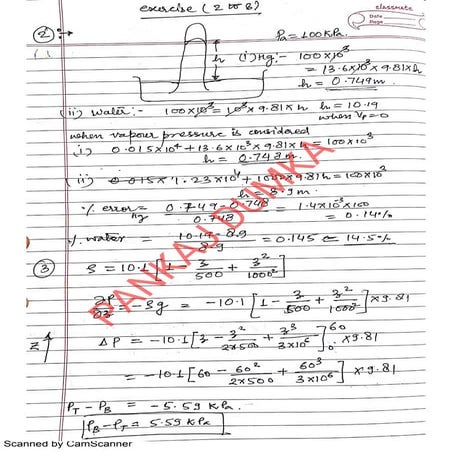 exercise (2 to 8)
classmate
Date
Page
② Pa = 100 KPa.
h (i) Hg:- 100×10³
= 13.6×10³×9.81×h
h = 0.749m
(ii) water:- 100×10³ = 10³×9.81×h h = 10.19
when Vp=0
when vapour pressure is considered
i) 0.015×10⁴ + 13.6×10³×9.81×h = 100×10³
h = 0.748m
(ii) 0.015× 1.23×10⁴ + 1000×9.81h = 100×10³
h = 8.9m
% error Hg = 0.749-0.748 / 0.748 = 1.4×10⁻³×100
= 0.14%
% water = 10.19-8.9 / 8.9 = 0.145 = 14.5%
③ ρ = 10.1 [1 - z/500 + z²/1000²]
∂P/∂z = -ρg = -10.1 [1 - z/500 + z²/1000²] ×9.81
z ΔP = -10.1 [z - z²/2×500 + z³/3×10⁶]₀⁶⁰ ×9.81
= -10.1 [60 - 60²/2×500 + 60³/3×10⁶] ×9.81
PT - PB = -5.59 KPa
PB - PT = 5.59 KPa
PANKAJ DUMKA
Scanned by CamScanner